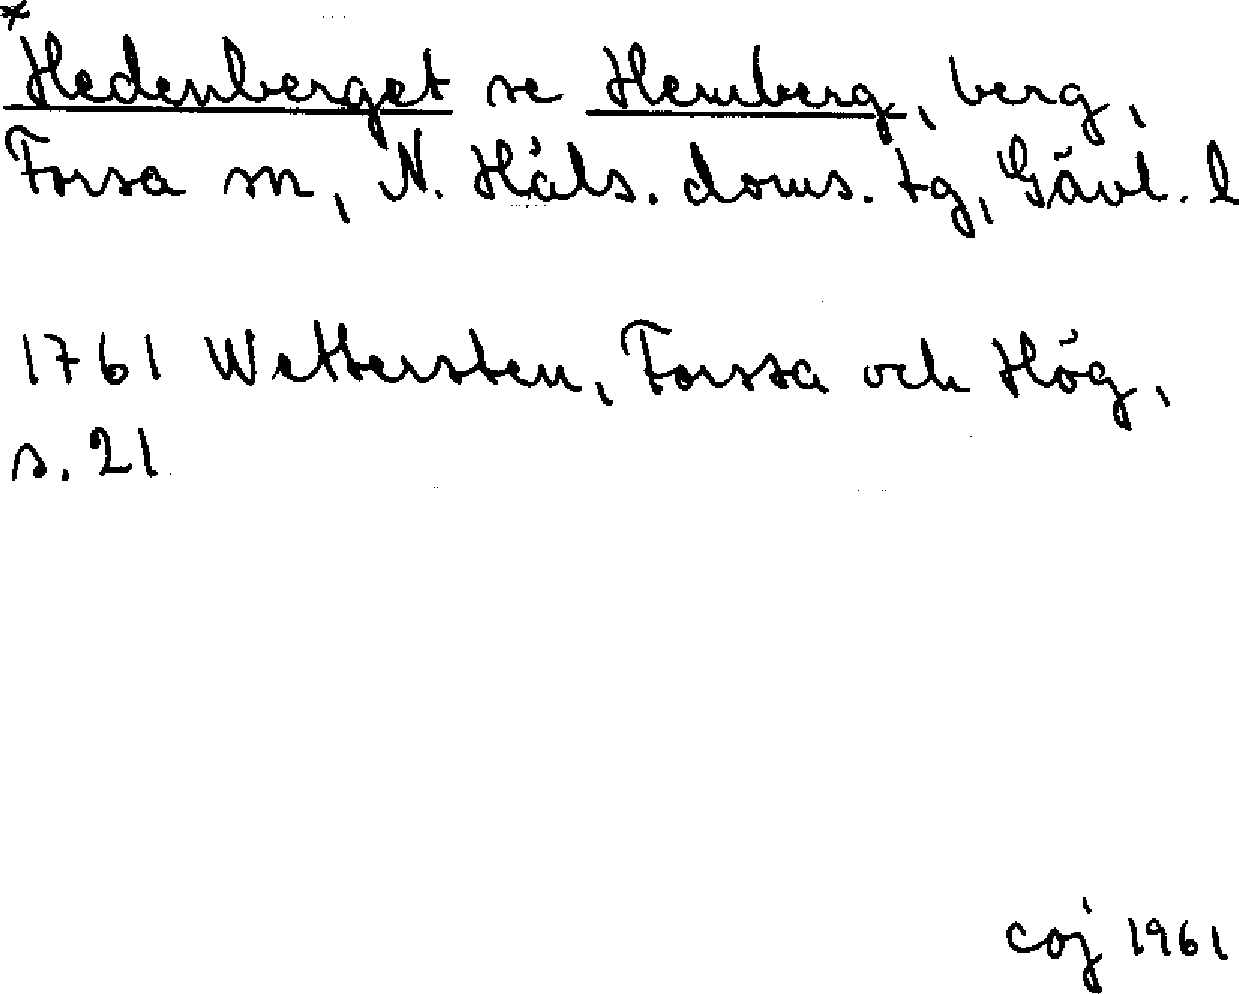 *
Hedenberget se Hemberg, berg,
Forsa sn, N. Häls. doms. tg, Gävl. l
1761 Wettersten, Forssa och Hög,
s. 21
coj 1961